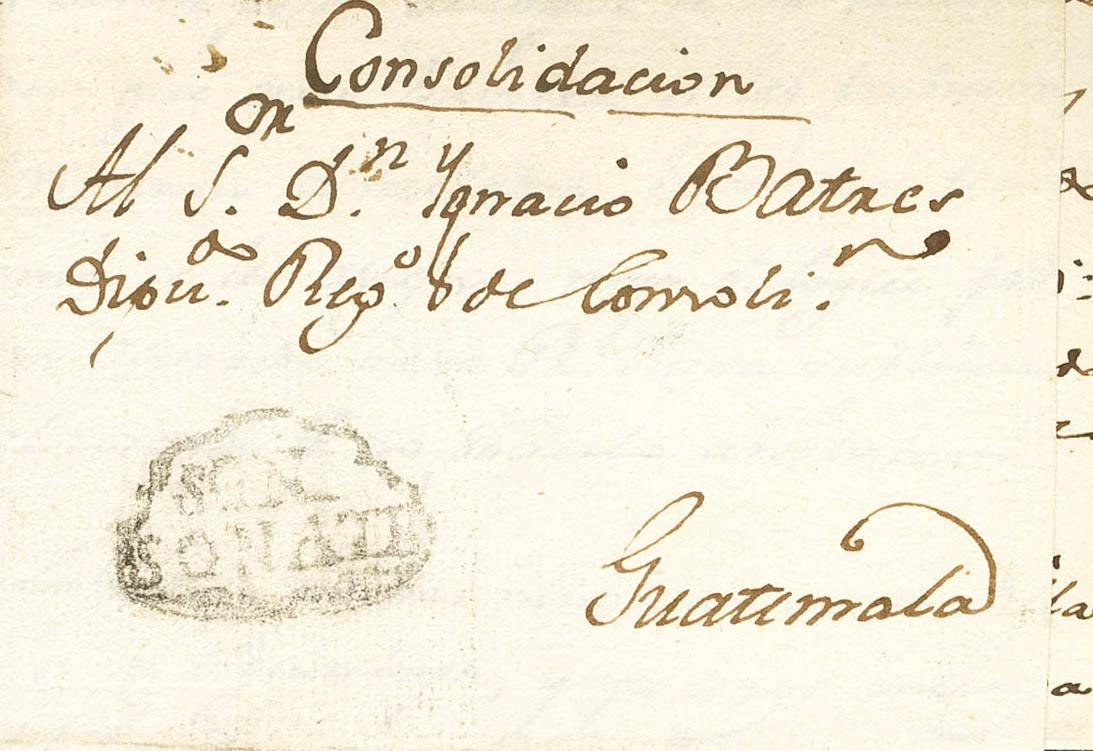 Consolidacion
Al S.ᵒʳ D.ⁿ Ygnacio Batres
Dipu.ᵈᵒ Reg.ᵒ de Consoli.ⁿ
SON
SONATE
Guatemala